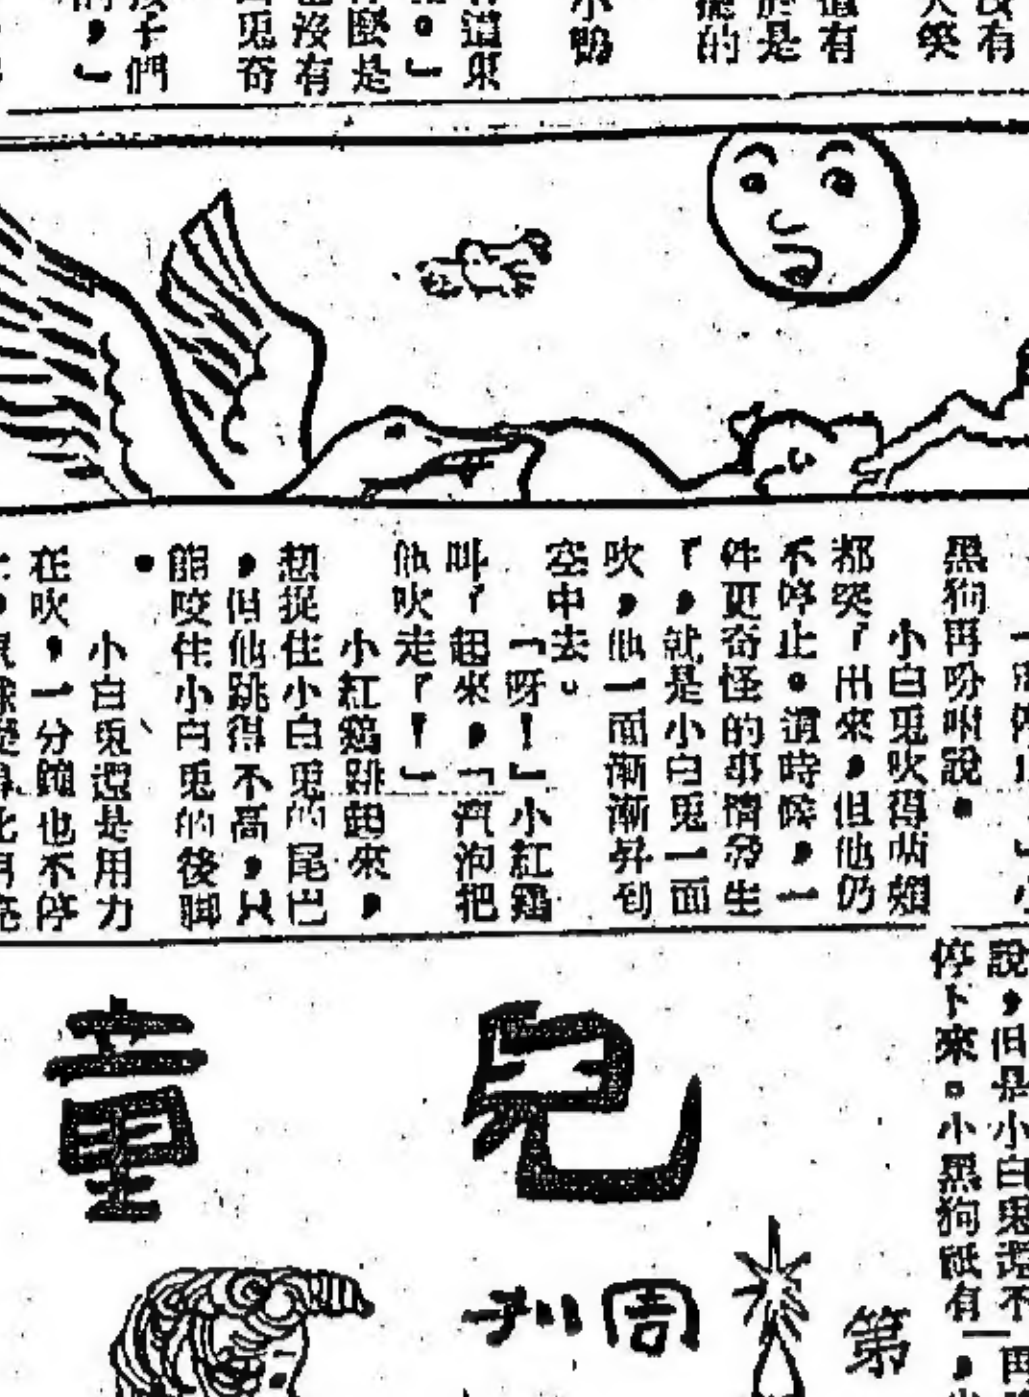 沒有
大笑
還有
於是
的
小鴨
麼是
也沒有
兎奇
孩子們
黑狗再吩咐說。
小白兎吹得兩頰
都突「出來，但他仍
不停止。這時候，一
件更奇怪的事情發生
「，就是小白兎一面
吹，他一面漸漸昇到
空中去。
「呀！」小紅鷄
叫「起來，「汽泡把
他吹走「！」
小紅鷄跳起來，
想捉住小白兎的尾巴
，但他跳得不高，只
能咬住小白兎的後脚
。
小白兎還是用力
在吹，一分鐘也不停
說，但是小白兎還不
停下來。小黑狗祇有
兒童
周刊
第